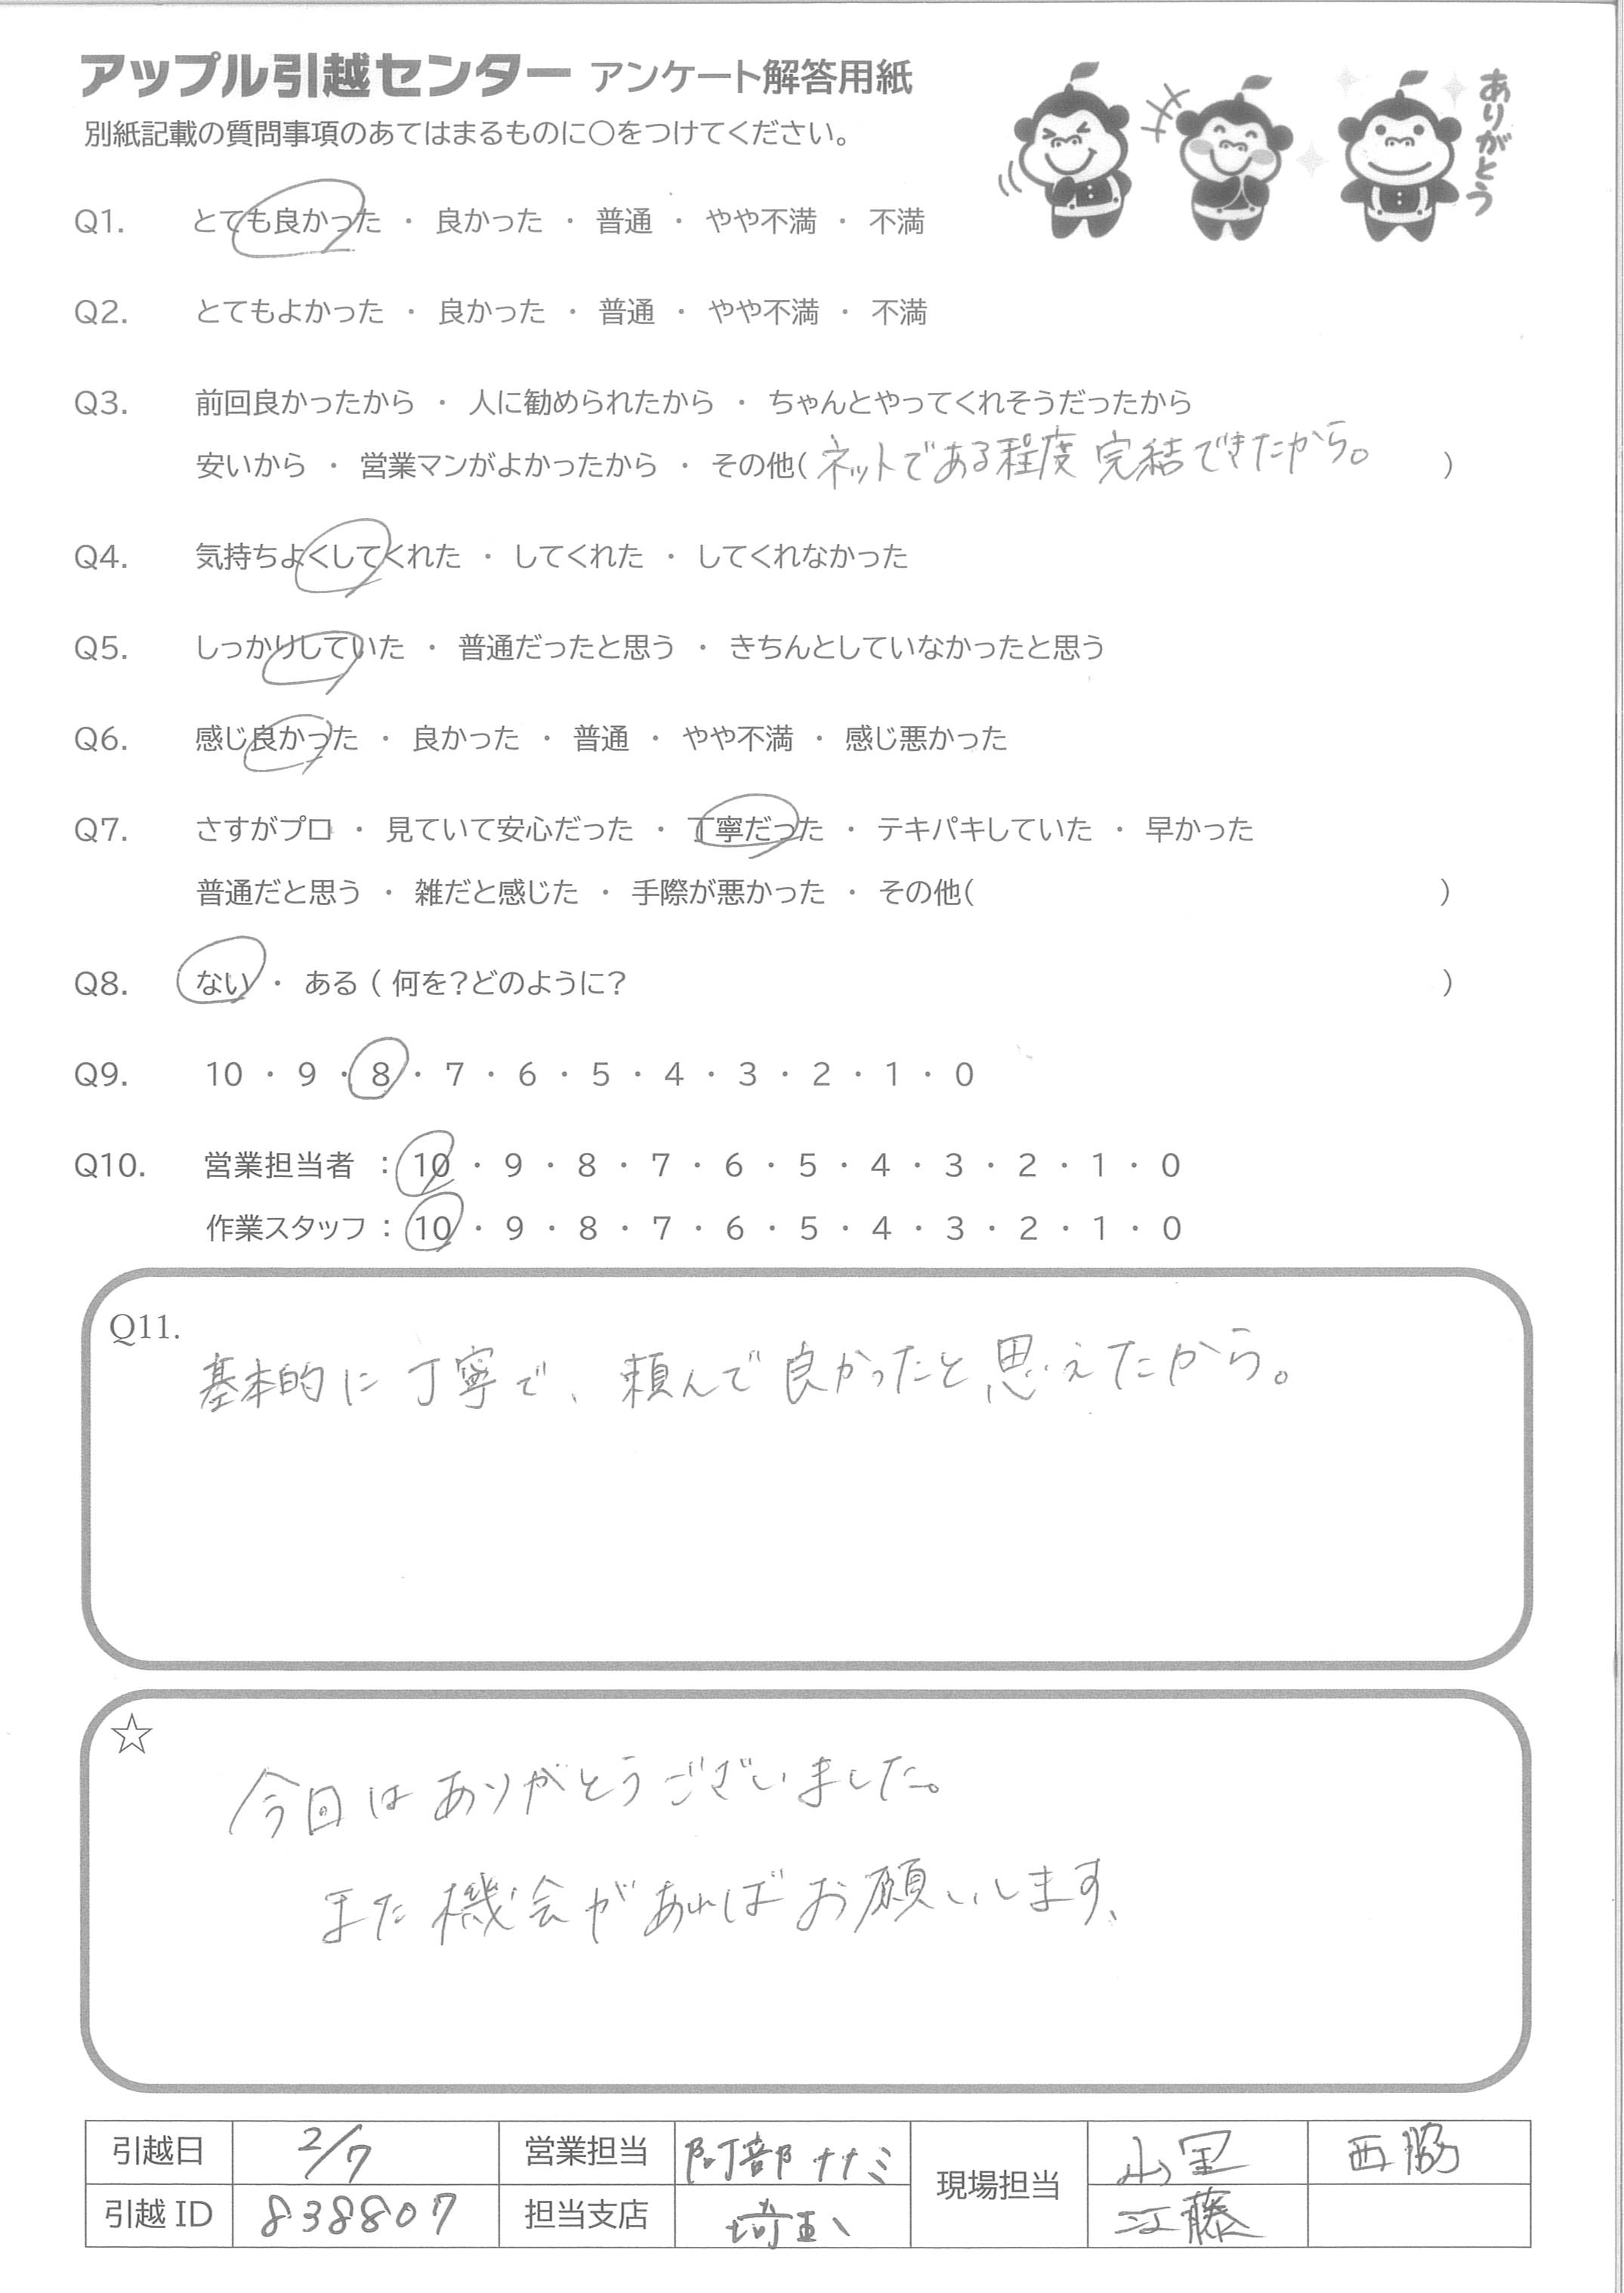 アップル引越センター アンケート解答用紙
ありがとう
別紙記載の質問事項のあてはまるものに〇をつけてください。
Q1. とても良かった ・ 良かった ・ 普通 ・ やや不満 ・ 不満
Q2. とてもよかった ・ 良かった ・ 普通 ・ やや不満 ・ 不満
Q3. 前回良かったから ・ 人に勧められたから ・ ちゃんとやってくれそうだったから
安いから ・ 営業マンがよかったから ・ その他( ネットである程度 完結できたから。 )
Q4. 気持ちよくしてくれた ・ してくれた ・ してくれなかった
Q5. しっかりしていた ・ 普通だったと思う ・ きちんとしていなかったと思う
Q6. 感じ良かった ・ 良かった ・ 普通 ・ やや不満 ・ 感じ悪かった
Q7. さすがプロ ・ 見ていて安心だった ・ 丁寧だった ・ テキパキしていた ・ 早かった
普通だと思う ・ 雑だと感じた ・ 手際が悪かった ・ その他( )
Q8. ない ・ ある ( 何を?どのように? )
Q9. 10 ・ 9 ・ 8 ・ 7 ・ 6 ・ 5 ・ 4 ・ 3 ・ 2 ・ 1 ・ 0
Q10. 営業担当者 : 10 ・ 9 ・ 8 ・ 7 ・ 6 ・ 5 ・ 4 ・ 3 ・ 2 ・ 1 ・ 0
作業スタッフ : 10 ・ 9 ・ 8 ・ 7 ・ 6 ・ 5 ・ 4 ・ 3 ・ 2 ・ 1 ・ 0
Q11.
基本的に丁寧で、頼んで良かったと思えたから。
☆
今回はありがとうございました。
また機会があればお願いします、
引越日 2/7 営業担当 阿部ナナミ 現場担当 山里 西脇
引越 ID 838807 担当支店 埼玉 江藤